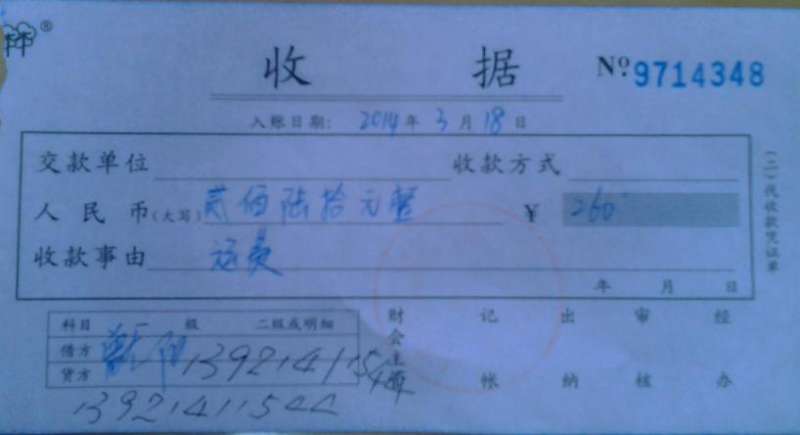 ®
收 据 Nº 9714348
入账日期: 2014年 3月 18日
交款单位 收款方式
人民币(大写) 贰佰陆拾元整 ¥ 260
收款事由 运费
年 月 日
(二)代收款凭证单
科目 级 二级或明细
借方
贷方 13921411544
13921411544
财会主管 记帐 出纳 审核 经办